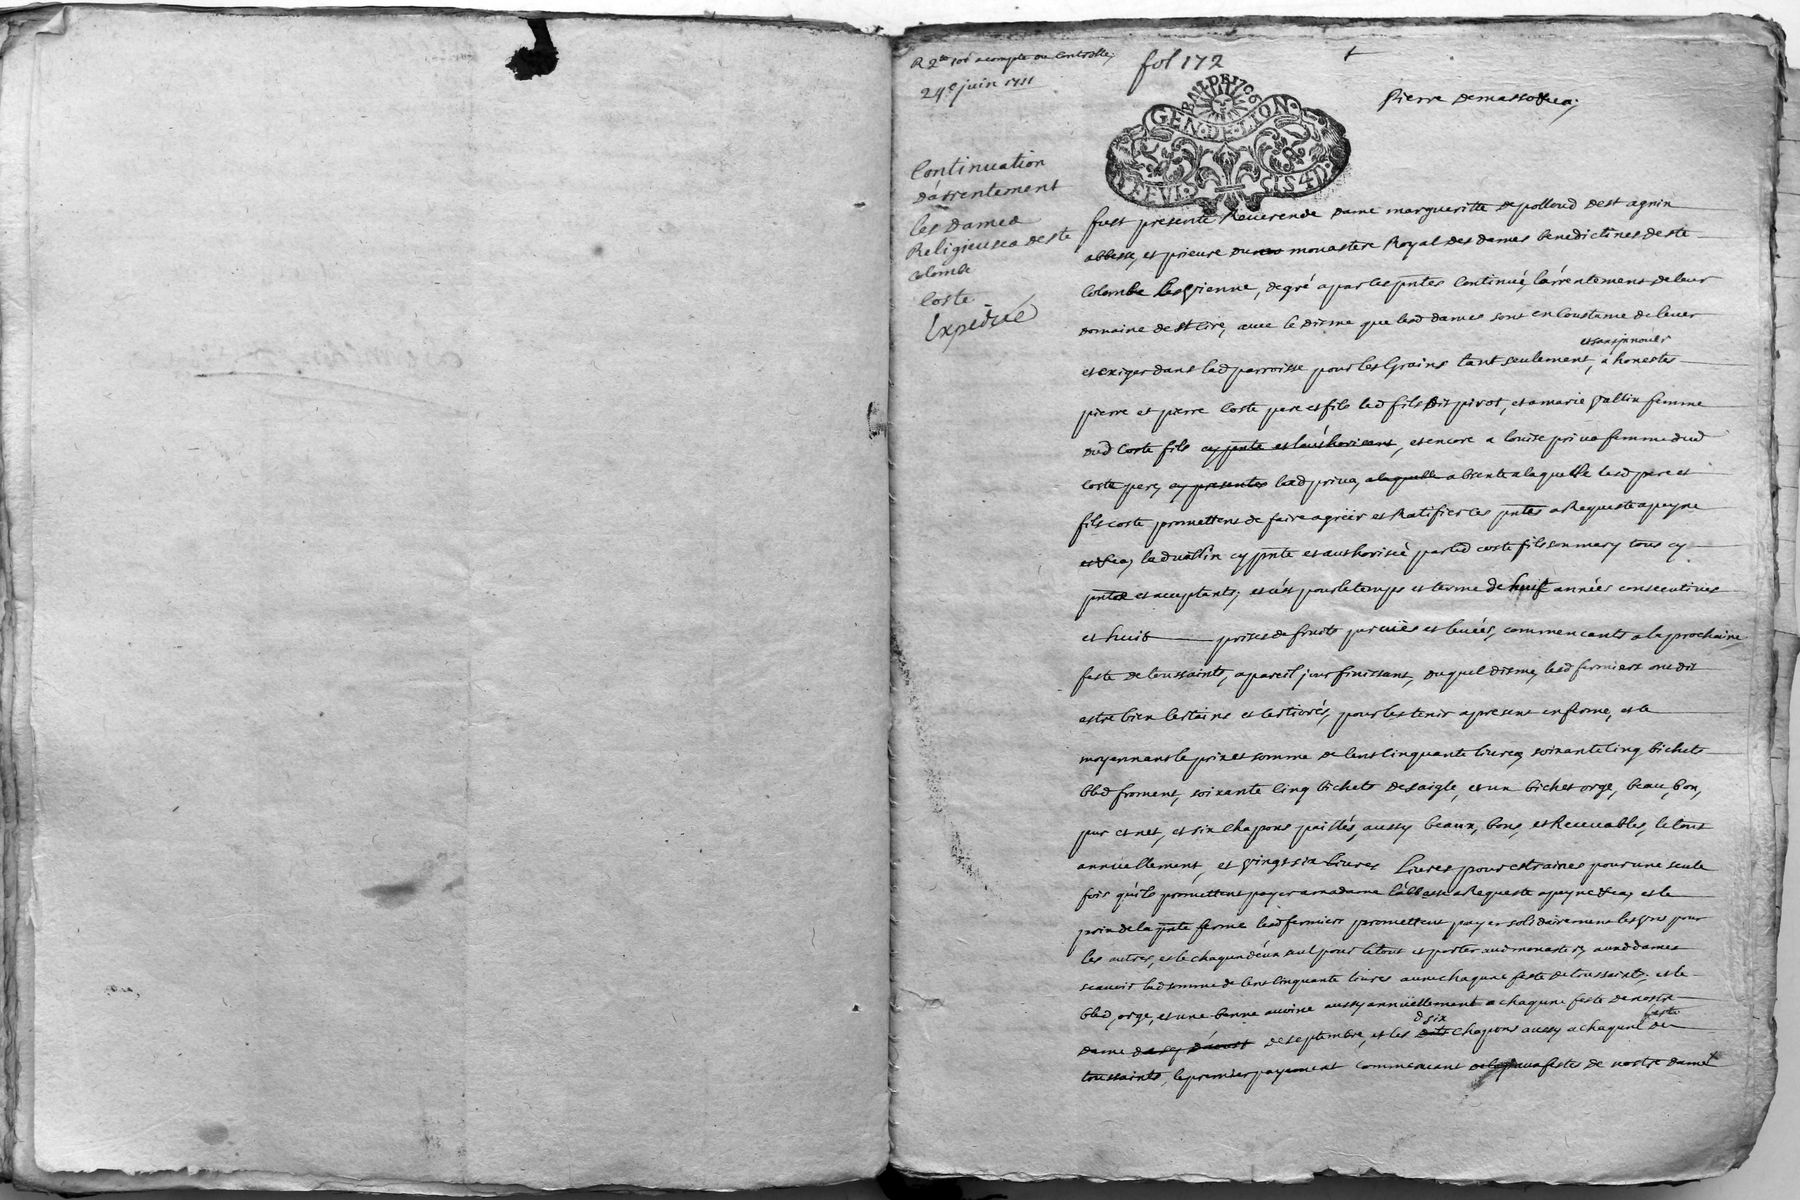 fol 172
24e juin 1711
Pierre Demasso &ca;
BAIL DE 1706
GEN · DE · LION
Continuation
d'arrentement
les Dames
Religieuses de Ste
colombe
Coste
Expedié
fust presente Reverende Dame margueritte de polloud de st agnin
abbesse, et prieure du monastere Royal des dames benedictines de ste
Colombe les vienne, de gré a par les pntes Continué, l'arrentement de leur
Domaine de st Cire, avec le disme que lesd dames sont en Coustume de lever
et sans jnnover
et exiger dans lad parroisse pour les Grains tant seulement, a honestes
pierre et pierre Coste pere et fils led fils dit pivot, et a marie vallin femme
dud Coste fils cy pnte et l'authorisant, et encore a louise priva femme dud
Coste pere, cy presentes lad priva, a laquelle absente a laquelle lesd pere et
fils coste promettent de faire agréer et Ratifier les pntes a Requeste a peyne
et &ca, lad vallin cy pnte et authorisée par led coste fils son mary tous cy
pntes et acceptants; et c'est pour le temps et terme de huit années consecutives
et huit prises de fruits parcuües et levées, commencants a la prochaine
feste de toussaints, a pareil jour finissant, duquel disme, lesd fermiers ont dit
estre bien Certains et Certiorés, pour les tenir a present en ferme, et le
moyennant le prix et somme de Cent Cinquante livres, soixante Cinq bichets
bled froment, soixante Cinq bichets de saigle, et un bichet orge, beau, bon,
pur et net, et six chapons paillés, aussy beaux, bons, et Recevables, le tout
annuellement, et vingt six livres Livres pour estraines pour une seule
fois qu'ils promettent payer a madame l'abbasse a Requeste a peyne &ca, et le
prix de la pnte ferme lesd fermiers promettent payer solidairement les uns pour
les autres, et le chaqun d'eux seul pour le tout et porter aud monastere, auxd dames
scavoir lad somme de Cent Cinquante livres a une chaqune feste de toussaints, et le
bled, orge, et une benne avoine aussy annüellement a chaqune feste de nostre
d six
feste
Dame d'aoust de septembre, et les dits chapons aussy a chaqune de
toussaints, le premier payement commencant festes de nostre dame